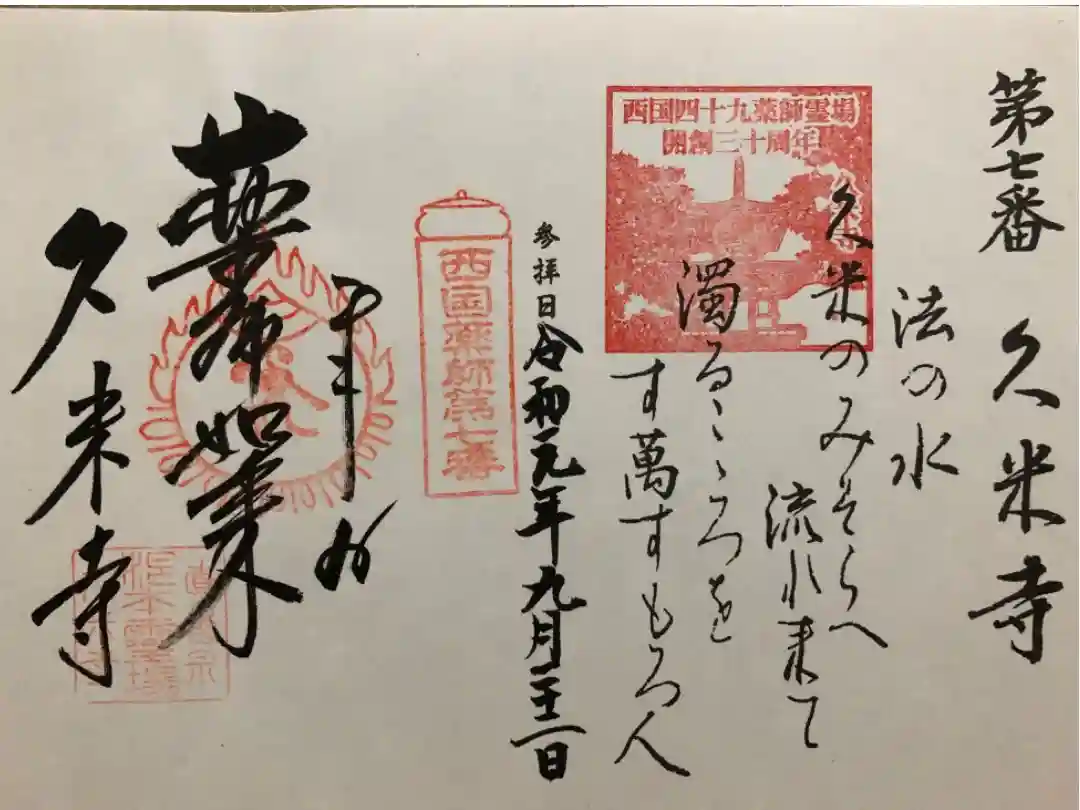 第七番 久米寺
法の水
久米のみそらへ
流れ来て
濁るこゝろを
す萬すもろ人
西国四十九薬師霊場
開創三十周年
久米寺
参拝日 令和元年九月二十二日
西国薬師第七番
薬師如来
久米寺